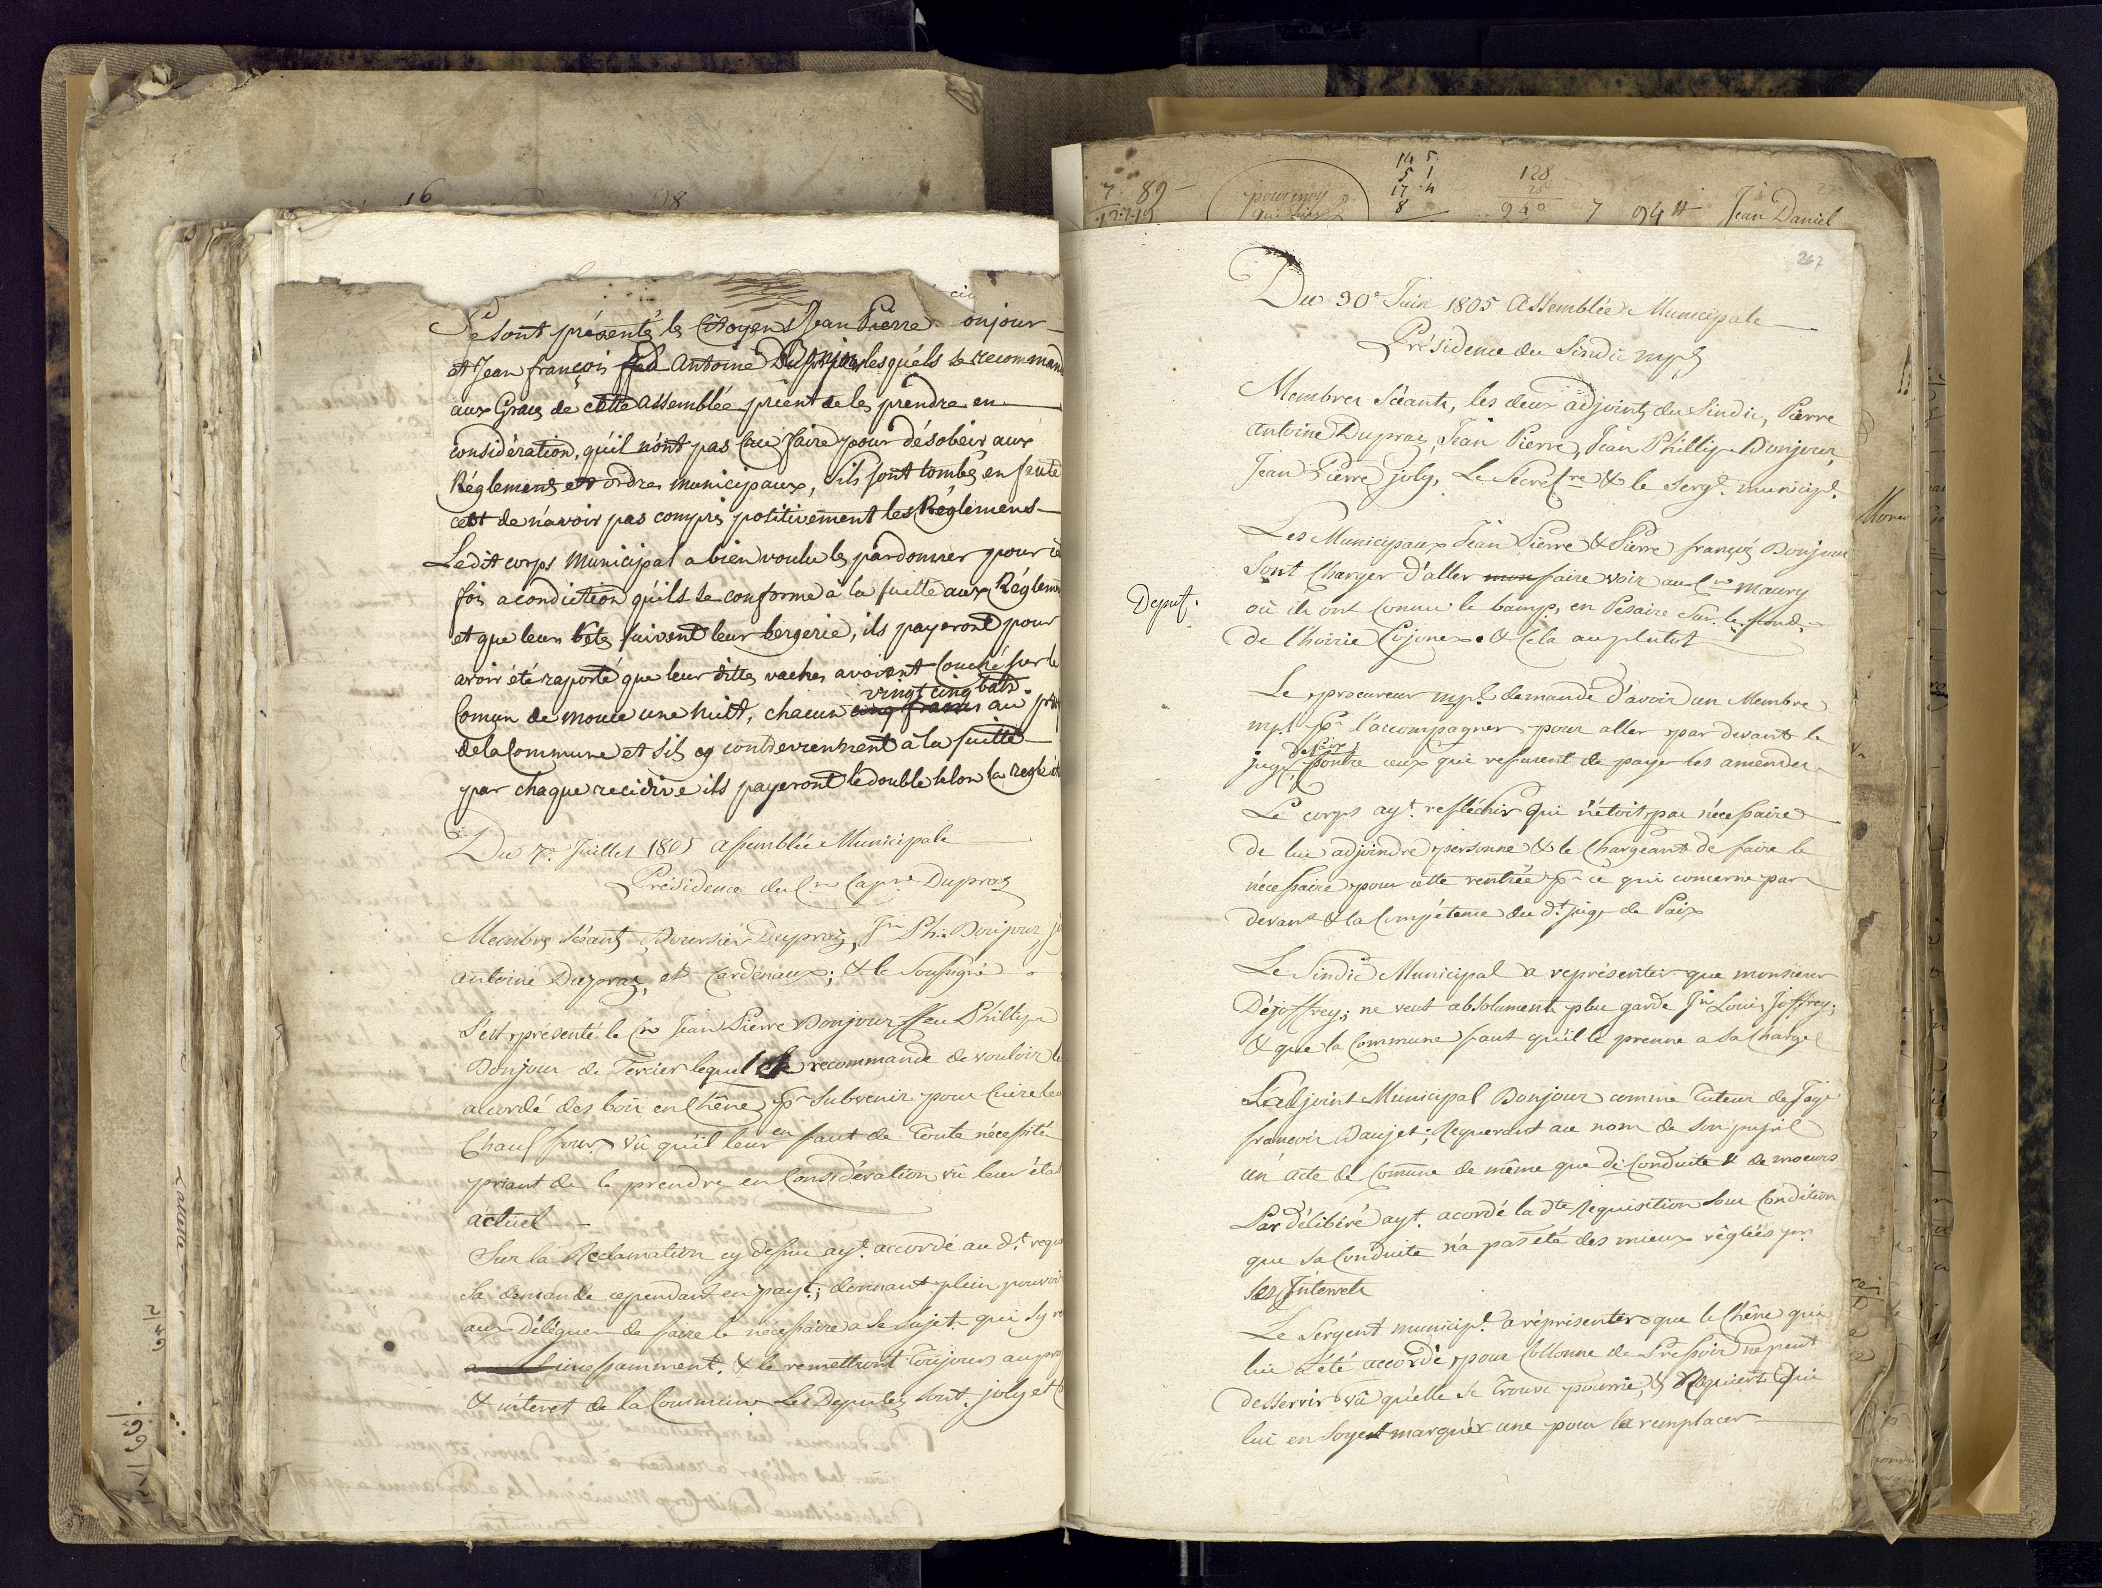 Se sont présenté le Citoyens Jean Pierre onjour
et Jean françois feu Antoine Dupraz lesquéls se recommand
aux Graces de cette assemblée prient de les préndre en
considération, qu'il n'ont pas Cru faire pour désobéir aux
Réglements et ordres municipaux, s'ils sont tombés en faute
cest de n'avoir pas compris positivement les Réglemens
Ledit corps Municipal a bien voulu le pardonner pour
fois a condiction qu'ils se conforme à la suitte aux Réglem
et que leurs bêtes suivent leur bergerie, ils payeront pour
avoir été raporté que leur dittes vaches avoient Couché sur le
vingt cinq batz
Comun de une nuit, chacun cinq francs au
de la Commune et sils y contrevienent à la suitte
par chaque recidive ils payeront le double selon la regle
Du 7e Juillet 1805 assemblée Municipale
Présidence du Cn Capne Dupraz
Membres Séants Boursier Dupraz, Jn Ph. Bonjour
antoine Dupraz, et Cardenaux; & le soussigné
S'est présenté le Cn Jean Pierre Bonjour ffeu Phillipe
Bonjour de Tercier lequel se recommande de vouloir le
acordé des bois en Chêne pr subvenir pour Cuire leu
Chauffour vû qu'il leur en faut de toute nécessité
priant de le prendre en Considération vû leur éta
actuel
Sur la Reclamation cy dessus ayt accordé au dt requ
sa demande cependant en payt; donnant plein pouvoi
aux Déléguer de faire le nécessaire a se sujet qui sy
incessamment. & le remettront toujours au pro
& intéret de la Commune Les Deputés sont joly et
7 89
pour moy
14 5
5 1
17 4
8
128
940 7 94 Jean Daniel
267
Du 30e Juin 1805 Assemblée Municipale
Présidence du Sindic mpl
Membres Séants, les deux adjoints du Sindic, Pierre
antoine Dupraz, Jean Pierre, Jean Phillipe Bonjour,
Jean Pierre joly, Le Sécretre & le Sergt municipl.
Deput.
Les Municipaux Jean Pierre & Pierre françois Bonjour
Sont Charger d'aller faire voir au Cn maury
où ils ont Connu le bamp, en Pesaire Sur le fond
de l'hoirie Cojonex & Cela au plutot
Le procureur mpl demande d'avoir un Membre
mpl pr l'accompagner pour aller par devant le
de Paix
juge contre ceux qui refusent de payer les amender
Le corps ayt refléchir qui n'étoit pas nécessaire
de lui adjoindre personne & le Chargeant de faire le
nécessaire pour cette rentrée pr ce qui concerne par
devant & la Compétence du dt juge de Paix
Le Sindic Municipal a représenter que monsieur
Déjoffrey; ne veut absolument plus garde Jn Louis Joffrey;
& que la Commune faut qu'il le prenne a sa Charge
L'adjoint Municipal Bonjour comme Tuteur de
francois Daujet; Requerant au nom de son pupil
un acte de Comune de même que de Conduite & de moeurs
Par délibéré ayt. acordé la dte Requisition sous Condition
que sa Conduite n'a pas été des mieux réglées pr
ses Interrets
Le Sergent municipl. a réprésenter que le chêne qui
lui a été accordé pour Collonne de Pressoir ne peut
desservir vû qu'elle se trouve pourrie, & Requiert qui
lui en soyent marquér une pour la remplacer